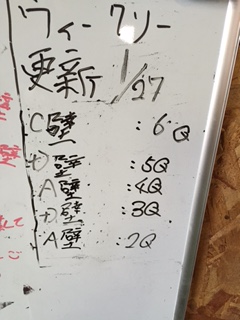 ウィークリー
更新 1/27
C壁 : 6Q
D壁 : 5Q
A壁 : 4Q
D壁 : 3Q
A壁 : 2Q
壁
壁